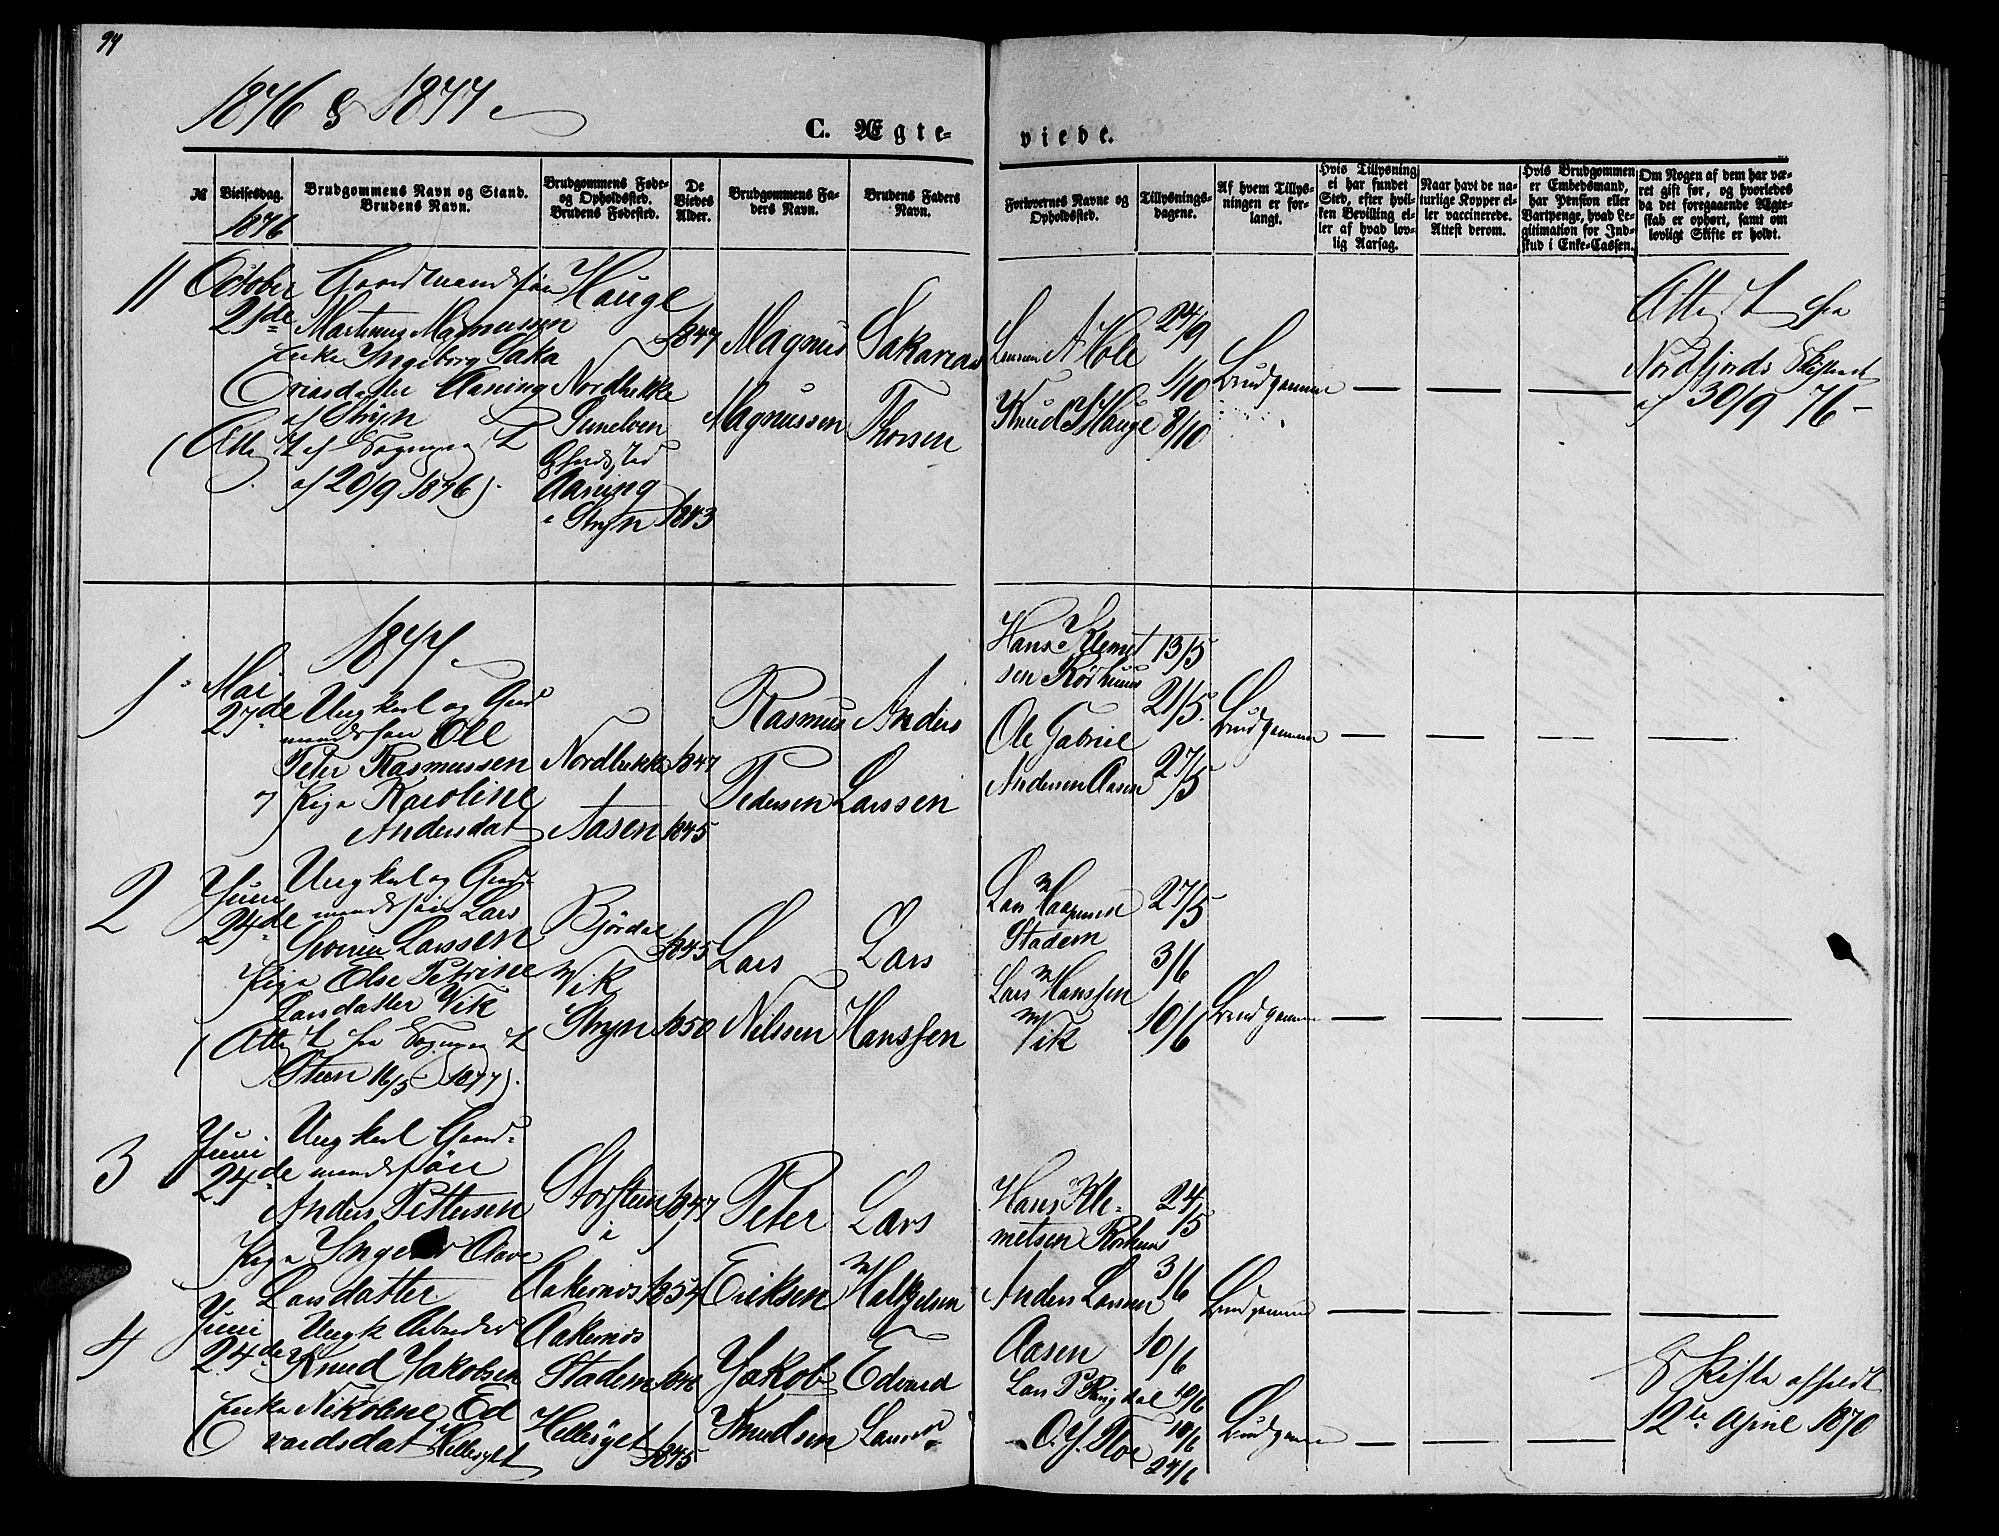 94
1876 & 1877
C. Ægte-
viede.
№
Vielsesdag.
1876
Brudgommens Navn og Stand.
Brudens Navn.
Brudgommens Føde-
og Opholdssted.
Brudens Fødested.
De
Viedes
Alder.
Brudgommens Fa-
ders Navn.
Brudens Faders
Navn.
Forlovernes Navne og
Opholdssted.
Tillysnings-
dagene.
Af hvem Tillys-
ningen er for-
langt.
Hvis Tillysning
ei har fundet
Sted, efter hvil-
ken Bevilling el-
ler af hvad lov-
lig Aarsag.
Naar havt de na-
turlige Kopper el-
ler vaccinerede.
Attest derom.
Hvis Brudgommen
er Embedsmand,
har Pension eller
Vartpenge, hvad Le-
gitimation for Ind-
skud i Enke-Cassen.
Om Nogen af dem har væ-
ret gift før, og hvorledes
da det foregaaende Ægte-
skab er ophørt, samt om
lovligt Skifte er holdt.
11
October
29de
Gaardmandssøn
Martinus Magnussen
Enke Ingeborg Saka
riasdatter Aaning
af Stryn
af 20/9 1876).
Hauge
Nordbekke
Sunelven
Opholdssted
Aaning
i Stryn
1847
1843
Magnus
Magnussen
Sakarias
Thorsen
A Hole
Knud Hauge
24/9
1/10
8/10
Brudgommen
— — —
Attest fra
Nordfjords Skifteret
af 30/9 76 –
1877
1
Mai
27de
Ungkarl og Gaard
mandssøn Ole
Peter Rasmussen
og Pige Karoline
Andersdat
Nordbekke
Aasen
1847
1845
Rasmus
Pedersen
Anders
Larssen
Hans Klemet
sen Rørhuus
Ole Gabriel
Andersen Aasen
13/5
21/5.
27/5
Brudgommen
— — — —
2
Juni
24de
Ungkarl og Gaard-
mandssøn Lars
Severin Larssen
Pige Else Petrine
Larsdatter Vik
16/5 1877).
Bjørdal
Vik
Stryn
1845
1850
Lars
Nilssen
Lars
Hanssen
Lars
Stadem
Lars Hanssen
Vik
27/5
3/6
10/6
Brudgommen
— — — —
3
Juni
24de
Ungkarl Gaard-
mandssøn
Anders Pettersen
Pige Olave
Larsdatter
Storsteen
i
Aakernes
1847
1854
Peter
Eriksen
Lars
Hans Kle-
metsen Rørhuus
Anders Larssen
Aasen
24/5
3/6
10/6
Brudgommen
— — — —
4
Juni
24de
Ungk Arbeider
Knud Jakobsen
Enke Nikoline Ed
vardsdat Hellesylt
Aakernes
Stadem
Hellesylt
1846
1845
Jakob
Knudsen
Edvard
Larssen
Lars P Ringdal
10/6
10/6
24/6
Brudgommen
— — —
Skifte afholdt
12te April 1870